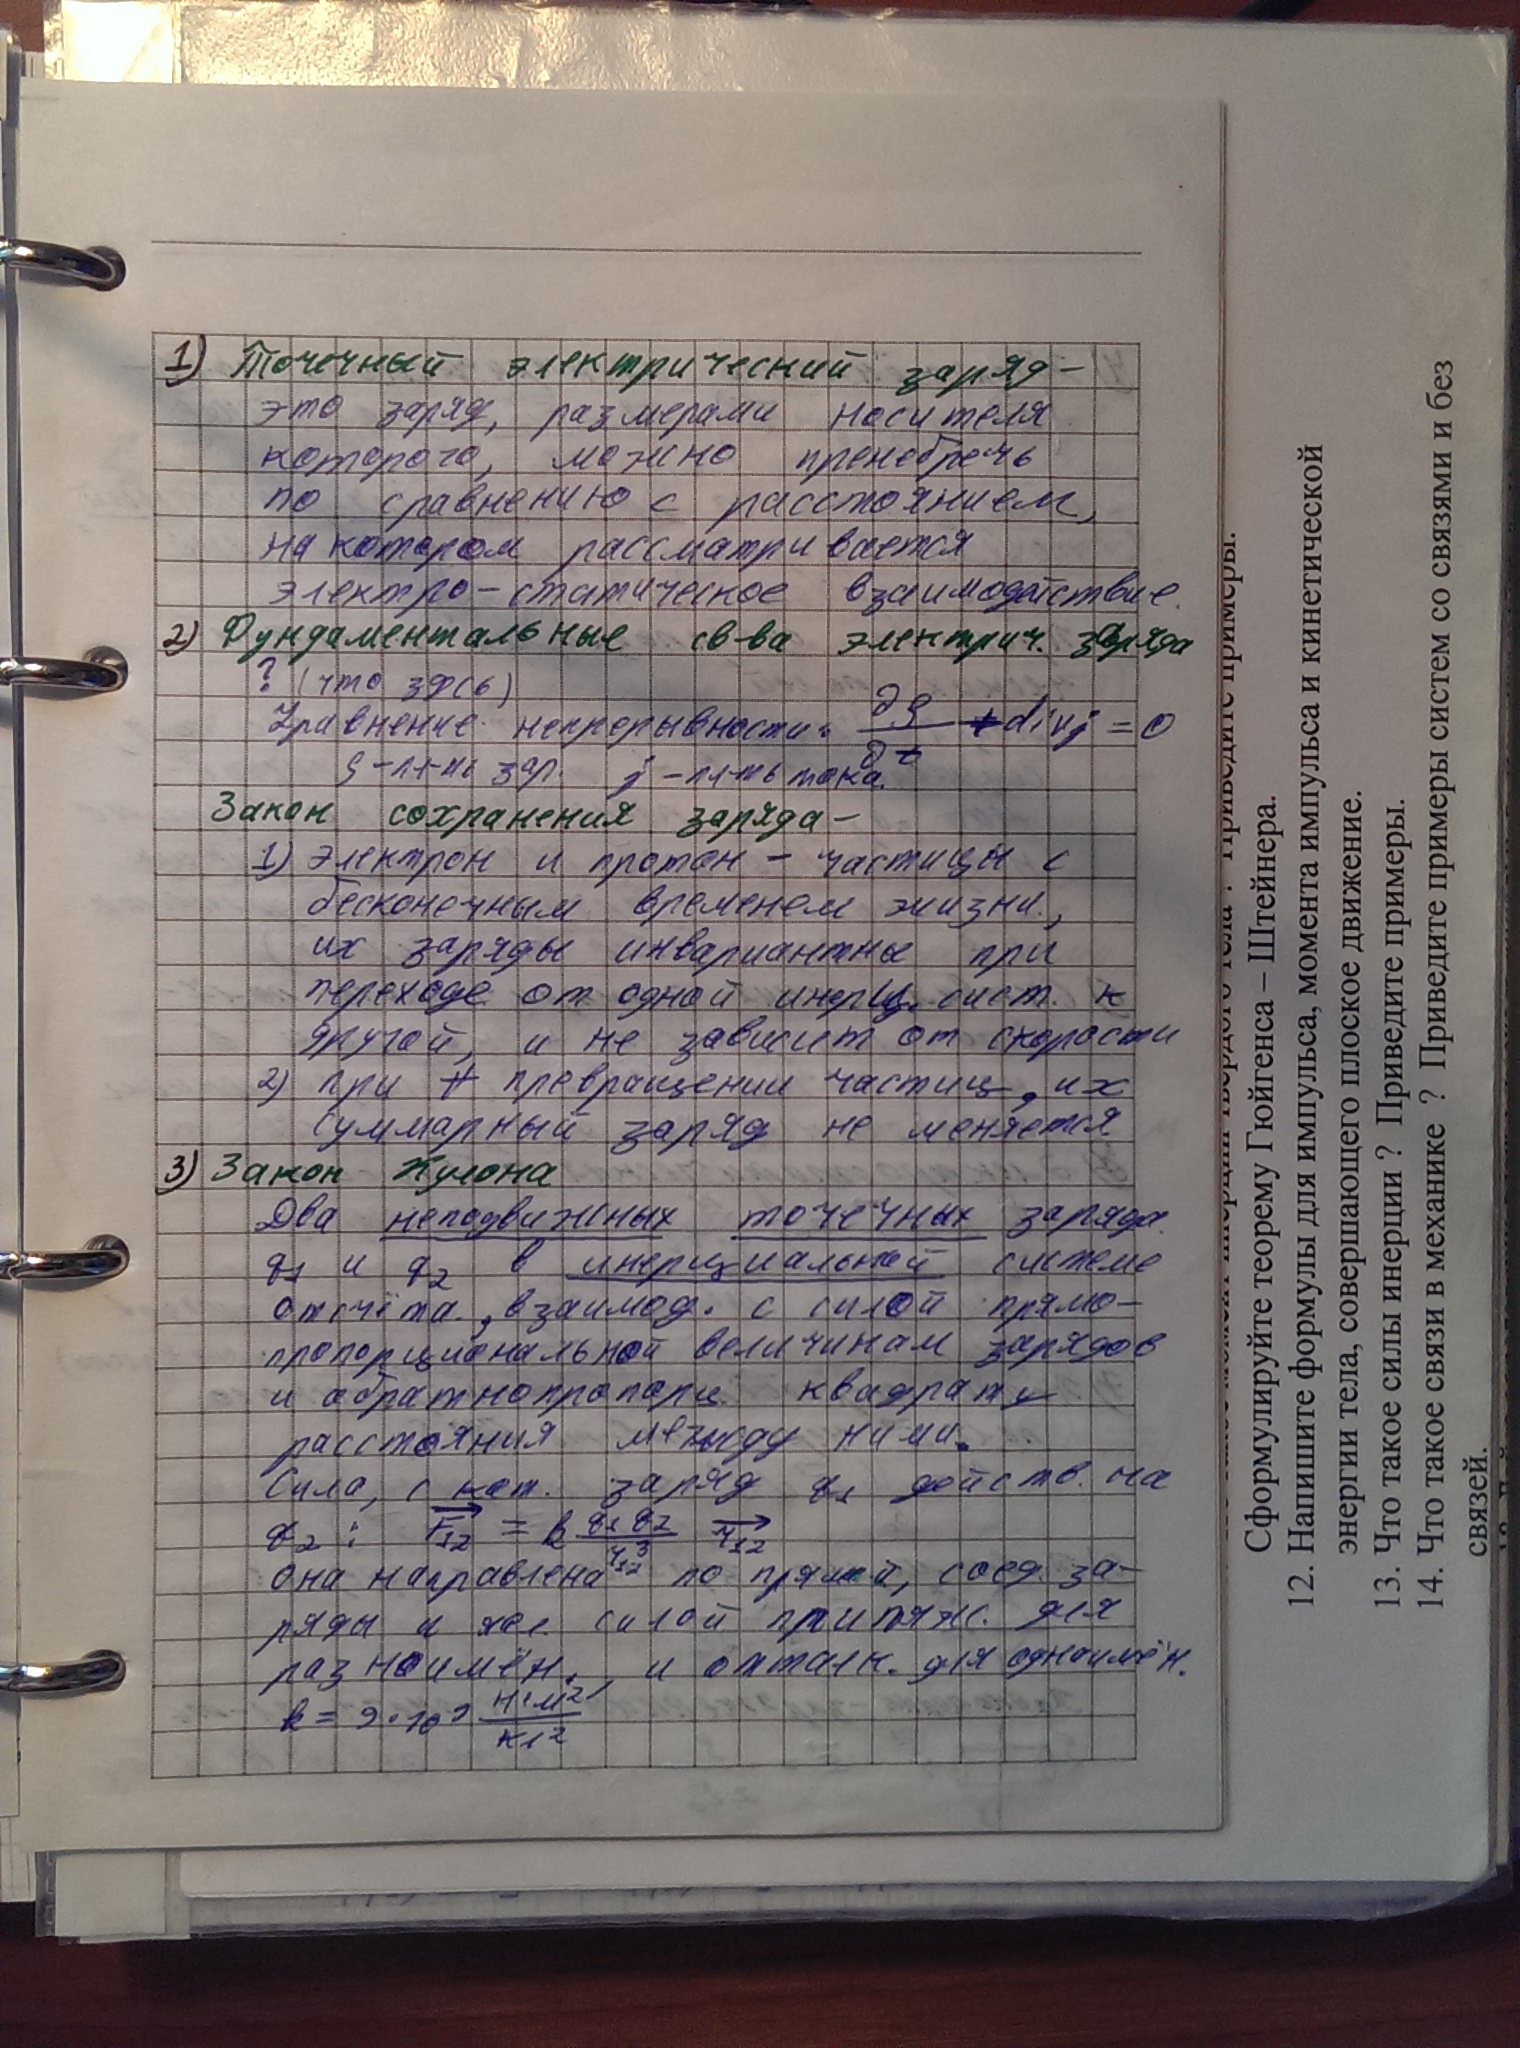 1) Точечный электрический заряд –
это заряд, размерами носителя
которого, можно пренебречь
по сравнению с расстоянием,
на котором рассматривается
электро-статическое взаимодействие.
2) Фундаментальные св-ва электрич. заряда
? (что здесь)
Уравнение непрерывности: ∂ρ/∂t + div j = 0
ρ – пл-ть зар. j – пл-ть тока.
Закон сохранения заряда –
1) электрон и протон – частицы с
бесконечным временем жизни,
их заряды инвариантны при
переходе от одной инерц. сист. к
другой, и не зависит от скорости
2) при превращении частиц, их
суммарный заряд не меняется
3) Закон Кулона
Два неподвижных точечных заряда
q1 и q2 в инерциальной системе
отсчёта, взаимод. с силой прямо-
пропорциональной величинам зарядов
и обратнопропорц. квадрату
расстояния между ними.
Сила, с кот. заряд q1 действ. на
q2 : F₁₂ = k q1 q2 / r₁₂³ r₁₂
она направлена по прямой, соед. за-
ряды и явл. силой притяж. для
разноимён., и отталк. для одноимён.
k = 9·10⁹ Н·м²/Кл²
Сформулируйте теорему Гюйгенса – Штейнера.
12. Напишите формулы для импульса, момента импульса и кинетической
энергии тела, совершающего плоское движение.
13. Что такое силы инерции ? Приведите примеры.
14. Что такое связи в механике ? Приведите примеры систем со связями и без
связей.